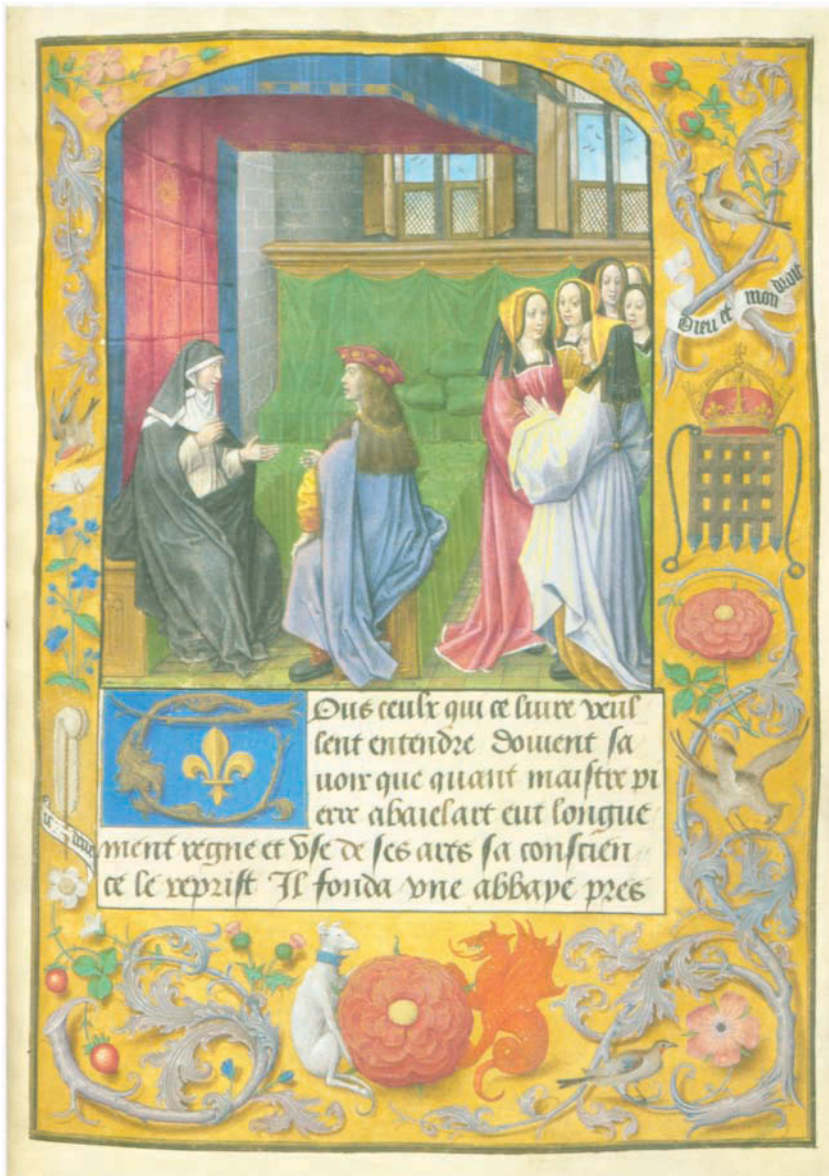 Dieu et mon droit
TOus ceulx qui ce liure veul
lent entendre doiuent sa
uoir que quant maistre pi
erre abaielart eut longue
ment regne et vse de ses ars sa conscien
ce le reprist Il fonda vne abbaye pres